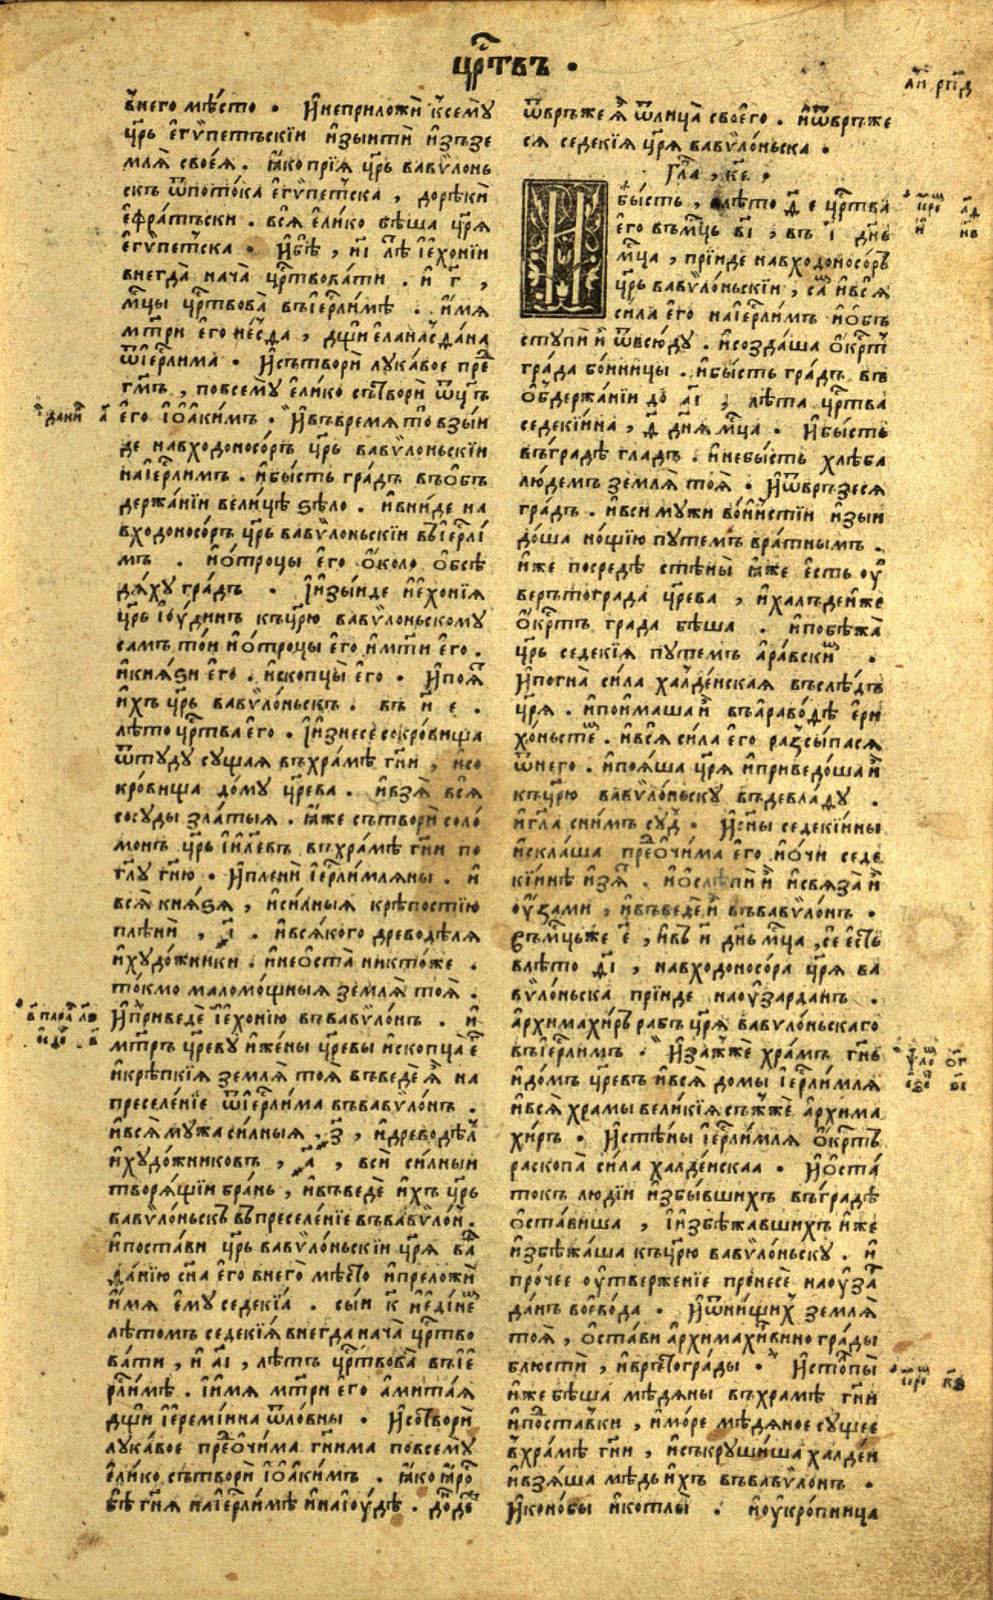 цр҃твъ ·
л҃п рп҃д
в҆него мѣсто · И҆неприложѝ к҆семꙋ
цр҃ь є҆гѵ́петъскїи и҆зыитѝ и҆зъзе
млѧ̀ своеѧ̀. ꙗ҆́ко прїѧ̀ цр҃ь вавѷлонь
скъ ѿпото́ка є҆гѵ́петска , дорѣкѝ
є҆фра́тьски . всѧ̀ є҆ли́ко бѣ́ша цр҃ѧ
є҆гѵ́петска · И҆бѣ̀ , и҃і лѣ̑ і҆є҆хо́нїи
внегда̀ нача̀ цр҃твова́ти . и҆ г҃ ,
мц҃ы цр҃твова̀ въі҆ер҃ли́мѣ . и҆́мѧ
мт҃ри є҆го не́сѳда , дщѝ є҆лана́сѳдана
ѿі҆ер҃ли́ма · И҆сътворѝ лꙋка́вое пре̑
гм҃ъ , повсемꙋ̀ є҆ли́ко сътворѝ ѿц҃ъ
дани̑ а҃ є҆го і҆ѡ҆аки́мъ · И҆въвремѧ то взы́и
де навходоносо́ръ цр҃ь вавѷло́ньскїи
наі҆ер҃ли́мъ . и҆бы́сть гра́дъ въѻ҆бъ
держа́нїи вели́цѣ ѕѣло . и҆вни́де на
входоносо́ръ цр҃ь вавѷло́ньскїи въі҆ер҃лі́
мъ . и҆ѻ҆́троцы є҆го ѻ҆́коло ѻ҆бсѣ
дѧ́хꙋ гра́дъ · И҆изы́иде и҆є҆хо́нїѧ
цр҃ь і҆ꙋ́динъ къцр҃ю вавѷло́ньскомꙋ
самъ то́и и҆ѻ҆́троцы є҆го и҆мт҃и є҆го .
и҆кнѧ́ѕи є҆го . и҆скопцы̀ є҆го · И҆поѧ̀
и҆́хъ цр҃ь вавѷло́ньскъ . въ и҃ е .
лѣ́то цр҃тва є҆го · И҆изнесѐ сокро́вища
ѿтꙋдꙋ сꙋщаѧ въхра́мѣ гн҃и , и҆со
кро́вища до́мꙋ цр҃ева . и҆взѧ̀ всѧ̀
сосꙋ́ды зла́тыѧ . ꙗ҆́же сътворѝ соло́
монъ цр҃ь і҆и҃левъ въхра́мѣ гн҃и по
гл҃ꙋ гн҃ю · И҆пленѝ і҆ер҃ли́млѧны . и҆
всѧ̀ кнѧ́ѕѧ , и҆си́лныѧ крѣ́постїю
плѣнѝ , ҂і҃ . и҆всѧ́кого древодѣ́лѧ
и҆хꙋдо́жники . и҆неѡ҆ста̀ никто́же .
то́кмо маломо́щныѧ землѧ̀ тоѧ̀ .
в҃ пара̑ л҃ѕ И҆приведѐ і҆є҆хо́нїю въвавѷло́нъ . и҆
мт҃ръ цр҃евꙋ и҆же́ны цр҃евы и҆скопца̀ є҆̑
и҆крѣ́пкїѧ землѧ̀ тоѧ̀ въведѐ ѧ҆̀ на
преселе́нїе ѿі҆ер҃ли́ма въвавѷло́нъ .
и҆всѧ̀ мꙋжа си́лныѧ . ҂з҃ , и҆древодѣ̑л
и҆хꙋдо́жниковъ , ҂а҃ , всѝ си́лныи
творѧ́щїи бра́нь , и҆въведѐ и҆́хъ цр҃ь
вавѷло́ньскъ въпреселе́нїе въвавѷло́н .
и҆поста́ви цр҃ь вавѷло́ньскїи цр҃ѧ ва̑
да́нїю сн҃а є҆го внего̀ мѣ́сто и҆преложѝ
и҆́мѧ є҆мꙋ̀ седекі́а . сы́и к҃ и҆є҆ди́не̑
лѣ́томъ седекі́ѧ внегда нача̀ цр҃тво
ва́ти , и҆ а҃і , лѣ́тъ цр҃твова̀ въі҆е
рл҃и́мѣ . и҆и́мѧ мт҃ри є҆го а҆мита́ѧ
дщѝ і҆ереміи́на ѿло́вны · И҆сотворѝ
лꙋка́вое пре̑ѻчи́ма гн҃има повсемꙋ̀
є҆ли́ко сътворѝ і҆ѡ҆аки́мъ . ꙗ҆́ко ꙗ҆́ро̑
бѣ̀ гн҃ѧ наі҆ер҃ли́мѣ и҆наі҆ꙋ́дѣ . до́де̑
ѿвръ́же ѧ҆̀ ѿлица̀ своего̀ . и҆ѿвръ́же
сѧ седекі́ѧ цр҃ѧ вавѷло́ньска .
Гл҃а , к҃е ,
И҆бы́сть , влѣ́то д҃ е цр҃тва
его въмц҃ь в҃і , въ і҃ дн҃ь
мц҃а , прїи́де навходоносо́ръ
цр҃ь вавѷло́ньскїи , са̑ и҆всѧ̀
си́ла є҆го наі҆ер҃ли́мъ и҆ѻ҆бъ
стꙋпѝ и҆̀ ѿвсю́дꙋ . и҆созда́ша ѻ҆́крт̑
гра́да бо́иницы . и҆бы́сть гра́дъ въ
ѻ҆́бдержа́нїи до а҃і , лѣ́та цр҃тва
седекі́ина , д҃ дн҃ѧ мц҃а . И҆бы́сть
въгра́дѣ гла́дъ . и҆небы́сть хлѣ́ба
лю́демъ землѧ̀ тоѧ̀ . И҆ѿвръ́зесѧ
гра́дъ . и҆вси мꙋжи во́иньстїи и҆зыи
до́ша но́щїю пꙋте́мъ вра́тнымъ .
и҆же посредѣ̀ стѣны̀ ꙗ҆́же є҆сть ѹ҆
верътогра́да цр҃ева , и҆халъде́иже
ѻ҆́кртъ гра́да бѣ́ша . и҆побѣжа̀
цр҃ь седекі́ѧ пꙋте́мъ а҆ра́вски̑ .
И҆погна̀ си́ла халде́искаѧ въслѣ́дъ
цр҃ѧ . и҆пои́маша и҆̀ въа҆раво́дѣ є҆ри
хо́ньсте̑ . и҆всѧ̀ си́ла є҆го разсы́пасѧ
ѿнего . и҆поѧ́ша цр҃ѧ и҆приведо́ша и҆̀
къцр҃ю вавѷло́ньскꙋ въдевла́дꙋ .
и҆гл҃а сни́мъ сꙋ̑д · И҆сн҃ы седекі́ины
и҆скла́ша пре̑ѻчи́ма є҆го и҆ѻ҆́чи седе
кі́инѣ и҆зѧ̀ . и҆ѻ҆слѣпѝ и҆̀ и҆свѧза̀ и҆̀
ѹ҆́зами , и҆въведѐ и҆̀ въвавѷло́нъ .
Въмц҃ьже є҃ , и҆в҆ и҃ дн҃ь мц҃а , се є҆сть
влѣ́то д҃і , навходоносо́ра цр҃ѧ ва
вѷло́ньска прїи́де наѹ҆зарда́нъ .
а҆рхимахи́ръ рабъ цр҃ѧ вавѷло́ньскаго
въі҆ер҃ли́мъ . И҆зажжѐ хра́мъ гн҃ь
и҆до́мъ цр҃евъ и҆всѧ̀ домы і҆ер҃ли́млѧ
и҆всѧ̀ хра́мы вели́кїѧ съжжѐ а҆рхима
хи́ръ · И҆стѣ́ны і҆ер҃ли́млѧ ѻ҆́кртъ
раскопа̀ си́ла халде́искаа . И҆ѻ҆ста́
токъ лю́дїи и҆збы́вшихъ въгра́дѣ
ѻ҆ста́виша , и҆избѣжа́вшихъ и҆́же
и҆збѣжа́ша къцр҃ю вавѷло́ньскꙋ . и҆
про́чее ѹ҆тверже́нїе пренесѐ наѹ҆за̑
да́нъ воево́да . И҆ѿни́щих землѧ̀
тоѧ̀ , ѻ҆ста́ви а҆рхимахи́ръ вино гра́ды
блюстѝ , и҆врътогра́ды · И҆столпы̀
и҆́же бѣ́ша мѣ́дѧны въхра́мѣ гн҃и
и҆поста́вки , и҆мо́ре мѣ́дѧное сꙋщее
в҆хра́мѣ гн҃и , и҆съкрꙋши́ша халде́и
и҆взѧ́ша мѣ́дь и҆́хъ въвавѷло́нъ .
И҆коно́бы и҆котлы̀ . и҆ѹ҆кро́пница